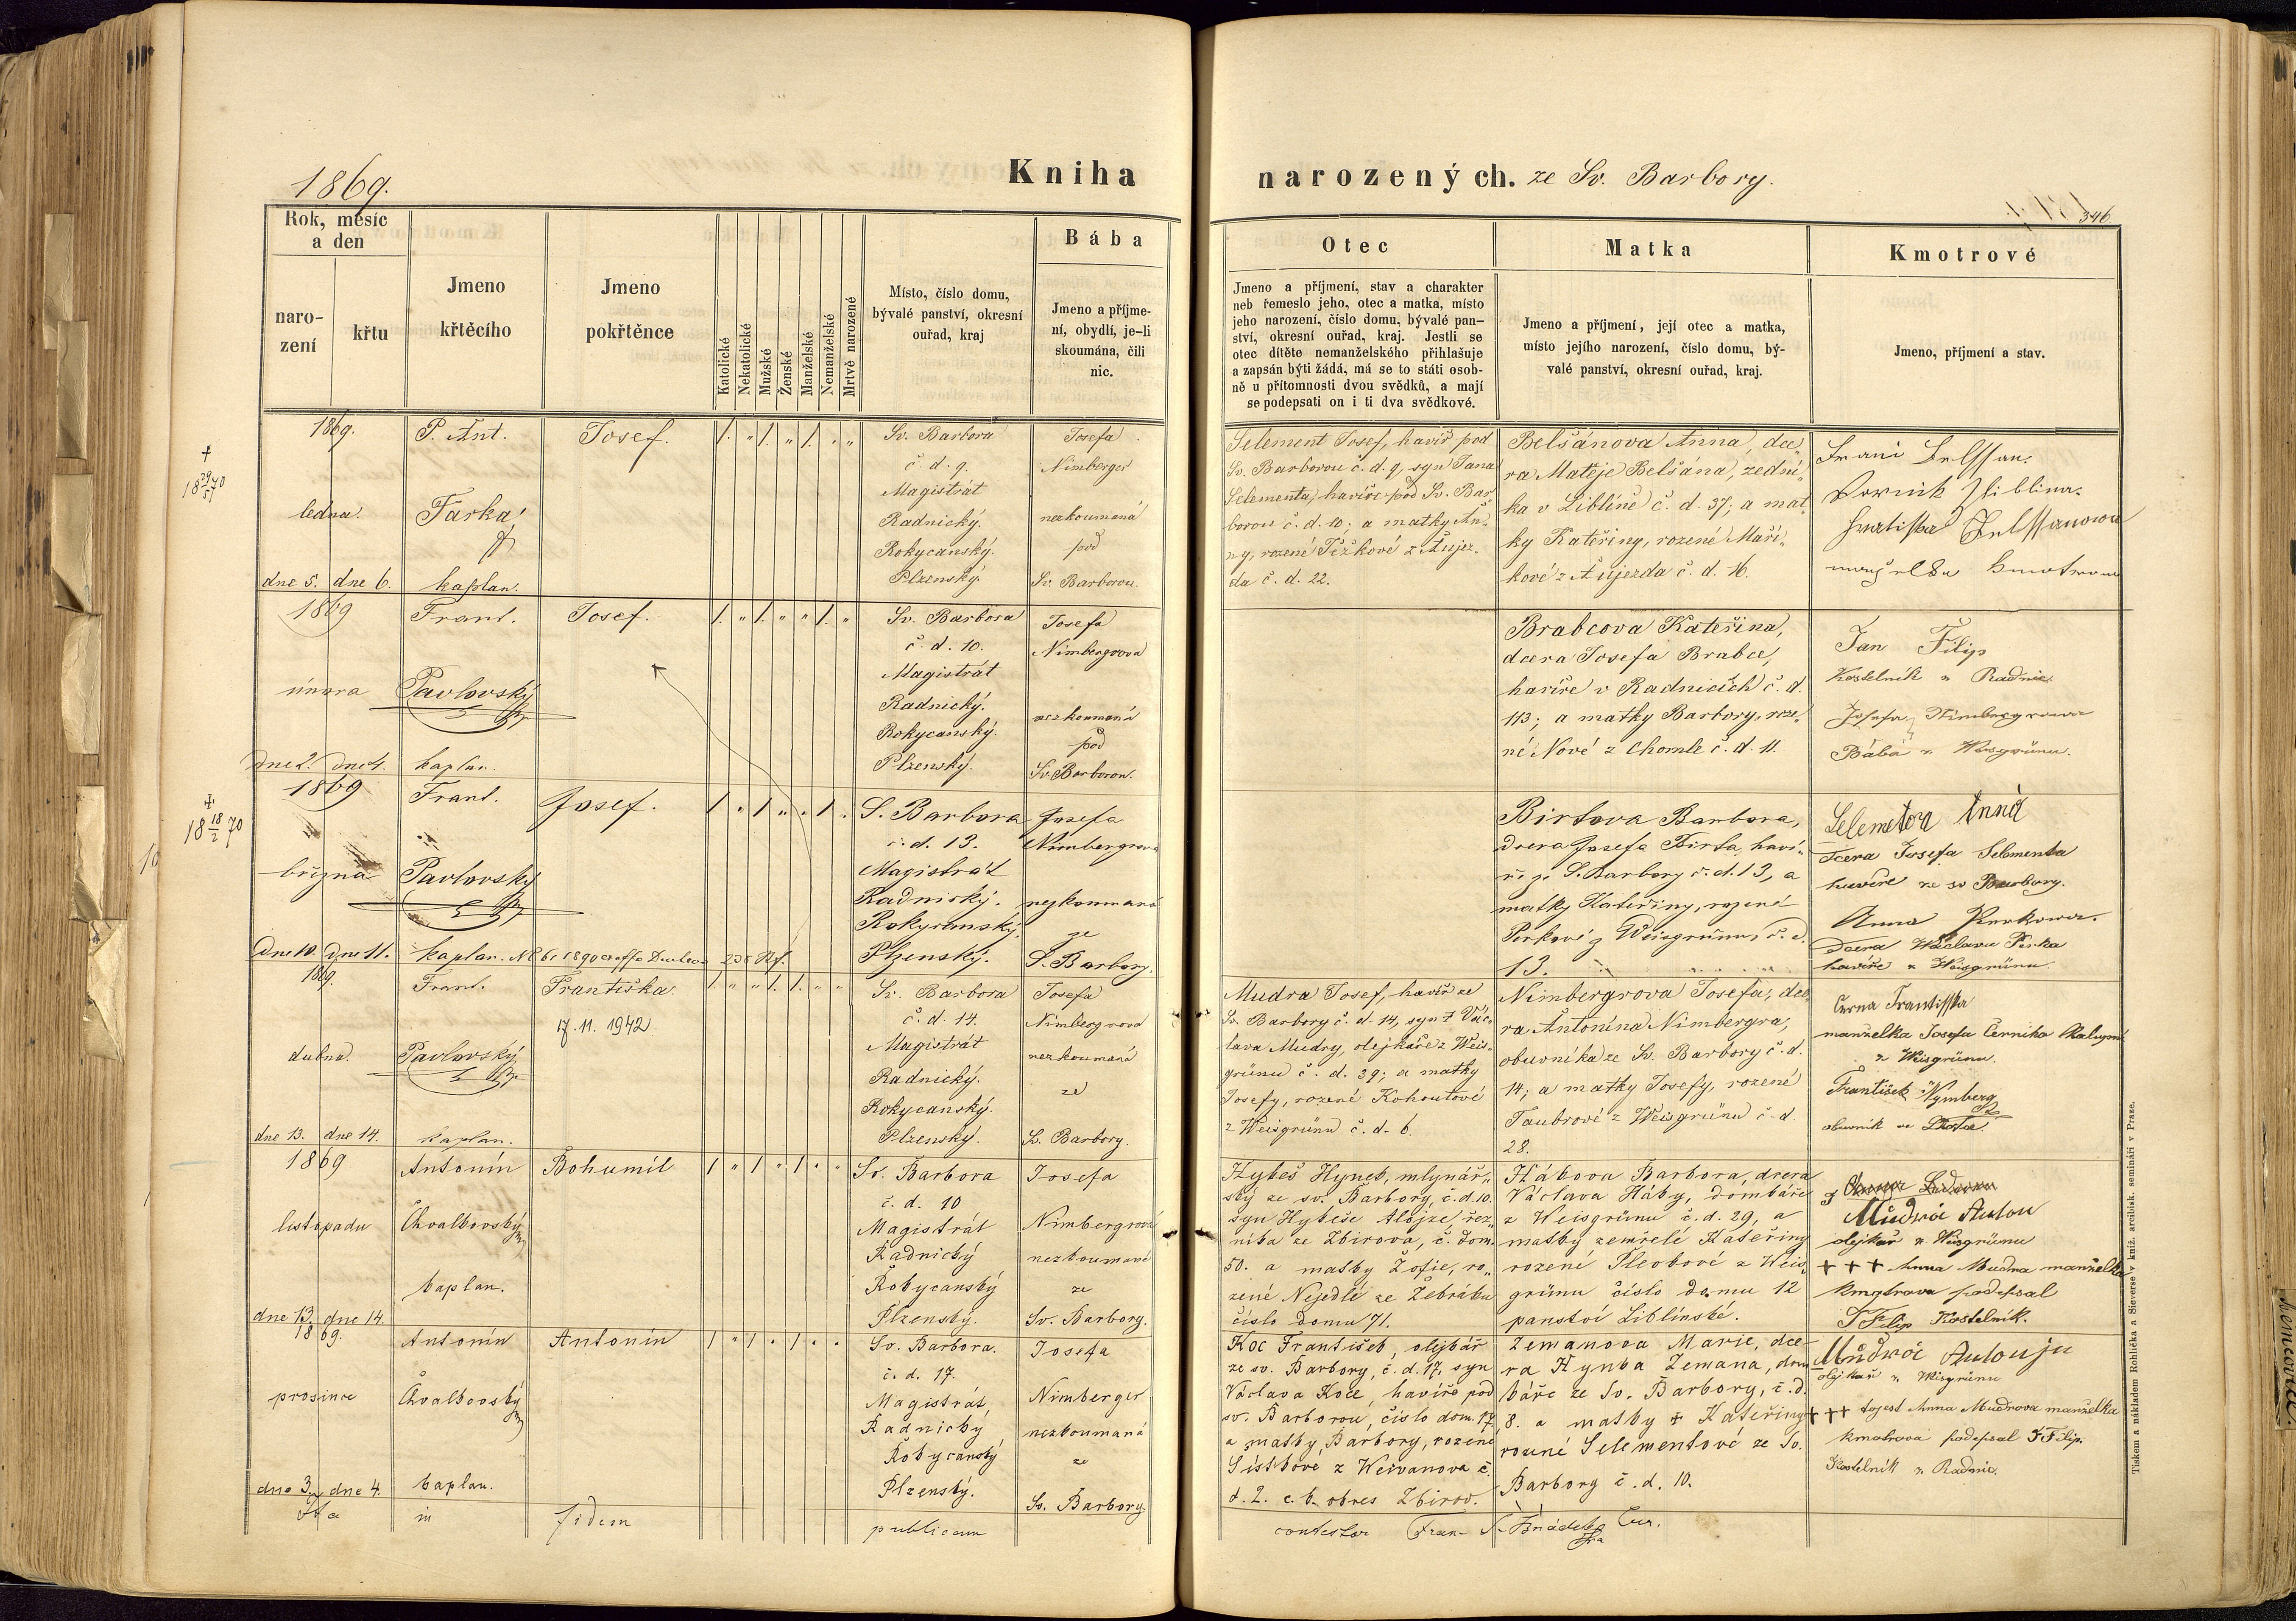 1869.
Kniha narozených. ze Sv. Barbory.
346.
Rok, měsíc
a den
naro-
zení
křtu
Jmeno
křtěcího
Jmeno
pokřtěnce
Katolické
Nekatolické
Mužské
Ženské
Manželské
Nemanželské
Mrtvě narozené
Místo, číslo domu,
bývalé panství, okresní
ouřad, kraj
Bába
Jmeno a příjme-
ní, obydlí, je-li
skoumána, čili
nic.
Otec
Jmeno a příjmení, stav a charakter
neb řemeslo jeho, otec a matka, místo
jeho narození, číslo domu, bývalé pan-
ství, okresní ouřad, kraj. Jestli se
otec dítěte nemanželského přihlašuje
a zapsán býti žádá, má se to státi osob-
ně u přítomnosti dvou svědků, a mají
se podepsati on i ti dva svědkové.
Matka
Jmeno a příjmení, její otec a matka,
místo jejího narození, číslo domu, bý-
valé panství, okresní ouřad, kraj.
Kmotrové
Jmeno, příjmení a stav.
1869.
ledna.
dne 5. dne 6.
P. Ant.
Farka,
kaplan.
Josef.
1. " 1. " 1. " "
Sv. Barbora
č. d. 9.
Magistrát
Radnický.
Rokycanský.
Plzenský.
Josefa
Nimberger
nezkoumaná
pod
Sv. Barborou.
Selement Josef, havíř pod
Sv. Barborou č. d. 9, syn Jana
Selementa, havíře pod Sv. Bar
borou č. d. 10; a matky An„
ny, rozené Tížkové z Aujez„
da č. d. 22.
Belšánova Anna, dce„
ra Matěje Belšána, zední„
ka v Liblíně č. d. 37; a mat„
ky Kateřiny, rozené Maří„
kové z Aujezda č. d. 16.
1869
února
dne 2. dne 4.
Frant.
Pavlovský
kaplan.
Josef.
1. " 1. " " 1. "
Sv. Barbora
č. d. 10.
Magistrát
Radnický.
Rokycanský.
Plzenský.
Josefa
Nimbergrova
nezkoumaná
pod
Sv. Barborou.
Brabcova Kateřina,
dcera Josefa Brabce,
havíře v Radnicích č. d.
113; a matky Barbory, roze„
né Nové z Chomle č. d. 11.
Jan Filip
Kostelník z Radnic
Josefa Nimbergrowa
Bába z Weisgrünu.
1869
března
dne 10. dne 11.
Frant.
Pavlovský
kaplan.
Josef.
1 " 1 " " 1 "
S. Barbora
č. d. 13.
Magistrát
Radnický.
Rokycanský.
Plzenský.
Josefa
Nimbergrova
nezkoumaná
ze
S. Barbory.
Birtova Barbora,
dcera Josefa Birta, haví„
ře ze S. Barbory č. d. 13, a
matky Kateřiny, rozené
Perkové z Weisgrünu, č. d.
13.
Selemetova Anna
dcera Josefa Selementa
havíře ze sv Barbory.
Anna Perkowa.
dcera Wáclava Perka
havíře z Weisgrünu.
1869.
dubna.
dne 13. dne 14.
Frant.
Pavlovský
kaplan.
Františka.
17. 11. 1942
1. " " 1. 1. " "
Sv. Barbora
č. d. 14.
Magistrát
Radnický.
Rokycanský.
Plzenský.
Josefa
Nimbergrova
nezkoumaná
ze
S. Barbory.
Mudra Josef, havíř ze
Sv. Barbory č. d. 14, syn † Vác„
lava Mudry, olejkáře z Weis„
grünu č. d. 39; a matky
Josefy, rozené Kohoutové
z Weisgrünu č. d. 6.
Nimbergrova Josefa, dce„
ra Antonína Nimbergra,
obuvníka ze Sv. Barbory č. d.
14; a matky Josefy, rozené
Taubrové z Weisgrünu č. d.
28.
Černa Frantisska
manželka Josefa Černika
z Weisgrünu.
František Nymberg
obuvník
1869
listopadu
dne 13. dne 14.
Antonín
Chvalkovský
kaplan.
Bohumil
1 " 1 " 1 " "
Sv. Barbora
č. d. 10
Magistrát
Radnický
Rokycanský
Plzenský.
Josefa
Nimbergrová
nezkoumaná
ze
Sv. Barbory.
Hykeš Hynek, mlynář„
ský ze sv. Barbory, č. d. 10.
syn Hykeše Alojze, řez„
níka ze Zbirova, č. dom.
50. a matky Žofie, ro„
zené Nejedlé ze Žebráku
číslo domu 71.
Hábova Barbora, dcera
Václava Háby, domkáře
z Weisgrünu č. d. 29, a
matky zemřelé Kateřiny
rozené Florové z Weis„
grünu číslo domu 12
panství Liblínské.
Mudra Anton
olejkář z Weisgrünu
+++ Anna Mudra manželka
kmotrova podepsal
J Filip Kostelník.
1869.
prosince
dne 3. dne 4.
Antonín
Chvalkovský
kaplan.
Antonín
1 " 1 " 1 " "
Sv. Barbora.
č. d. 17.
Magistrát,
Radnický
Rokycanský
Plzenský.
Josefa
Nimberger
nezkoumaná
ze
Sv. Barbory.
Koc František, olejkář
ze sv. Barbory, č. d. 17, syn
Václava Koce, havíře pod
sv. Barborou, číslo dom. 17
a matky, Barbory, rozené
z Weivanova č.
d. 2. c. k. okres Zbirov.
Zemanova Marie, dce
ra Hynka Zemana, dom
káře ze Sv. Barbory, č. d.
8. a matky † Kateřiny
rozené Selementové ze Sv.
Barbory č. d. 10.
olejkář z Weisgrünu
+++ tojest Anna Mudrova manželka
kmotrova podepsal J Filip.
Kostelník z Radnic.
in fidem publicam contestor
Tiskem a nákladem Rohlíčka a Sieverse v kníž. arcibisk. semináři v Praze.